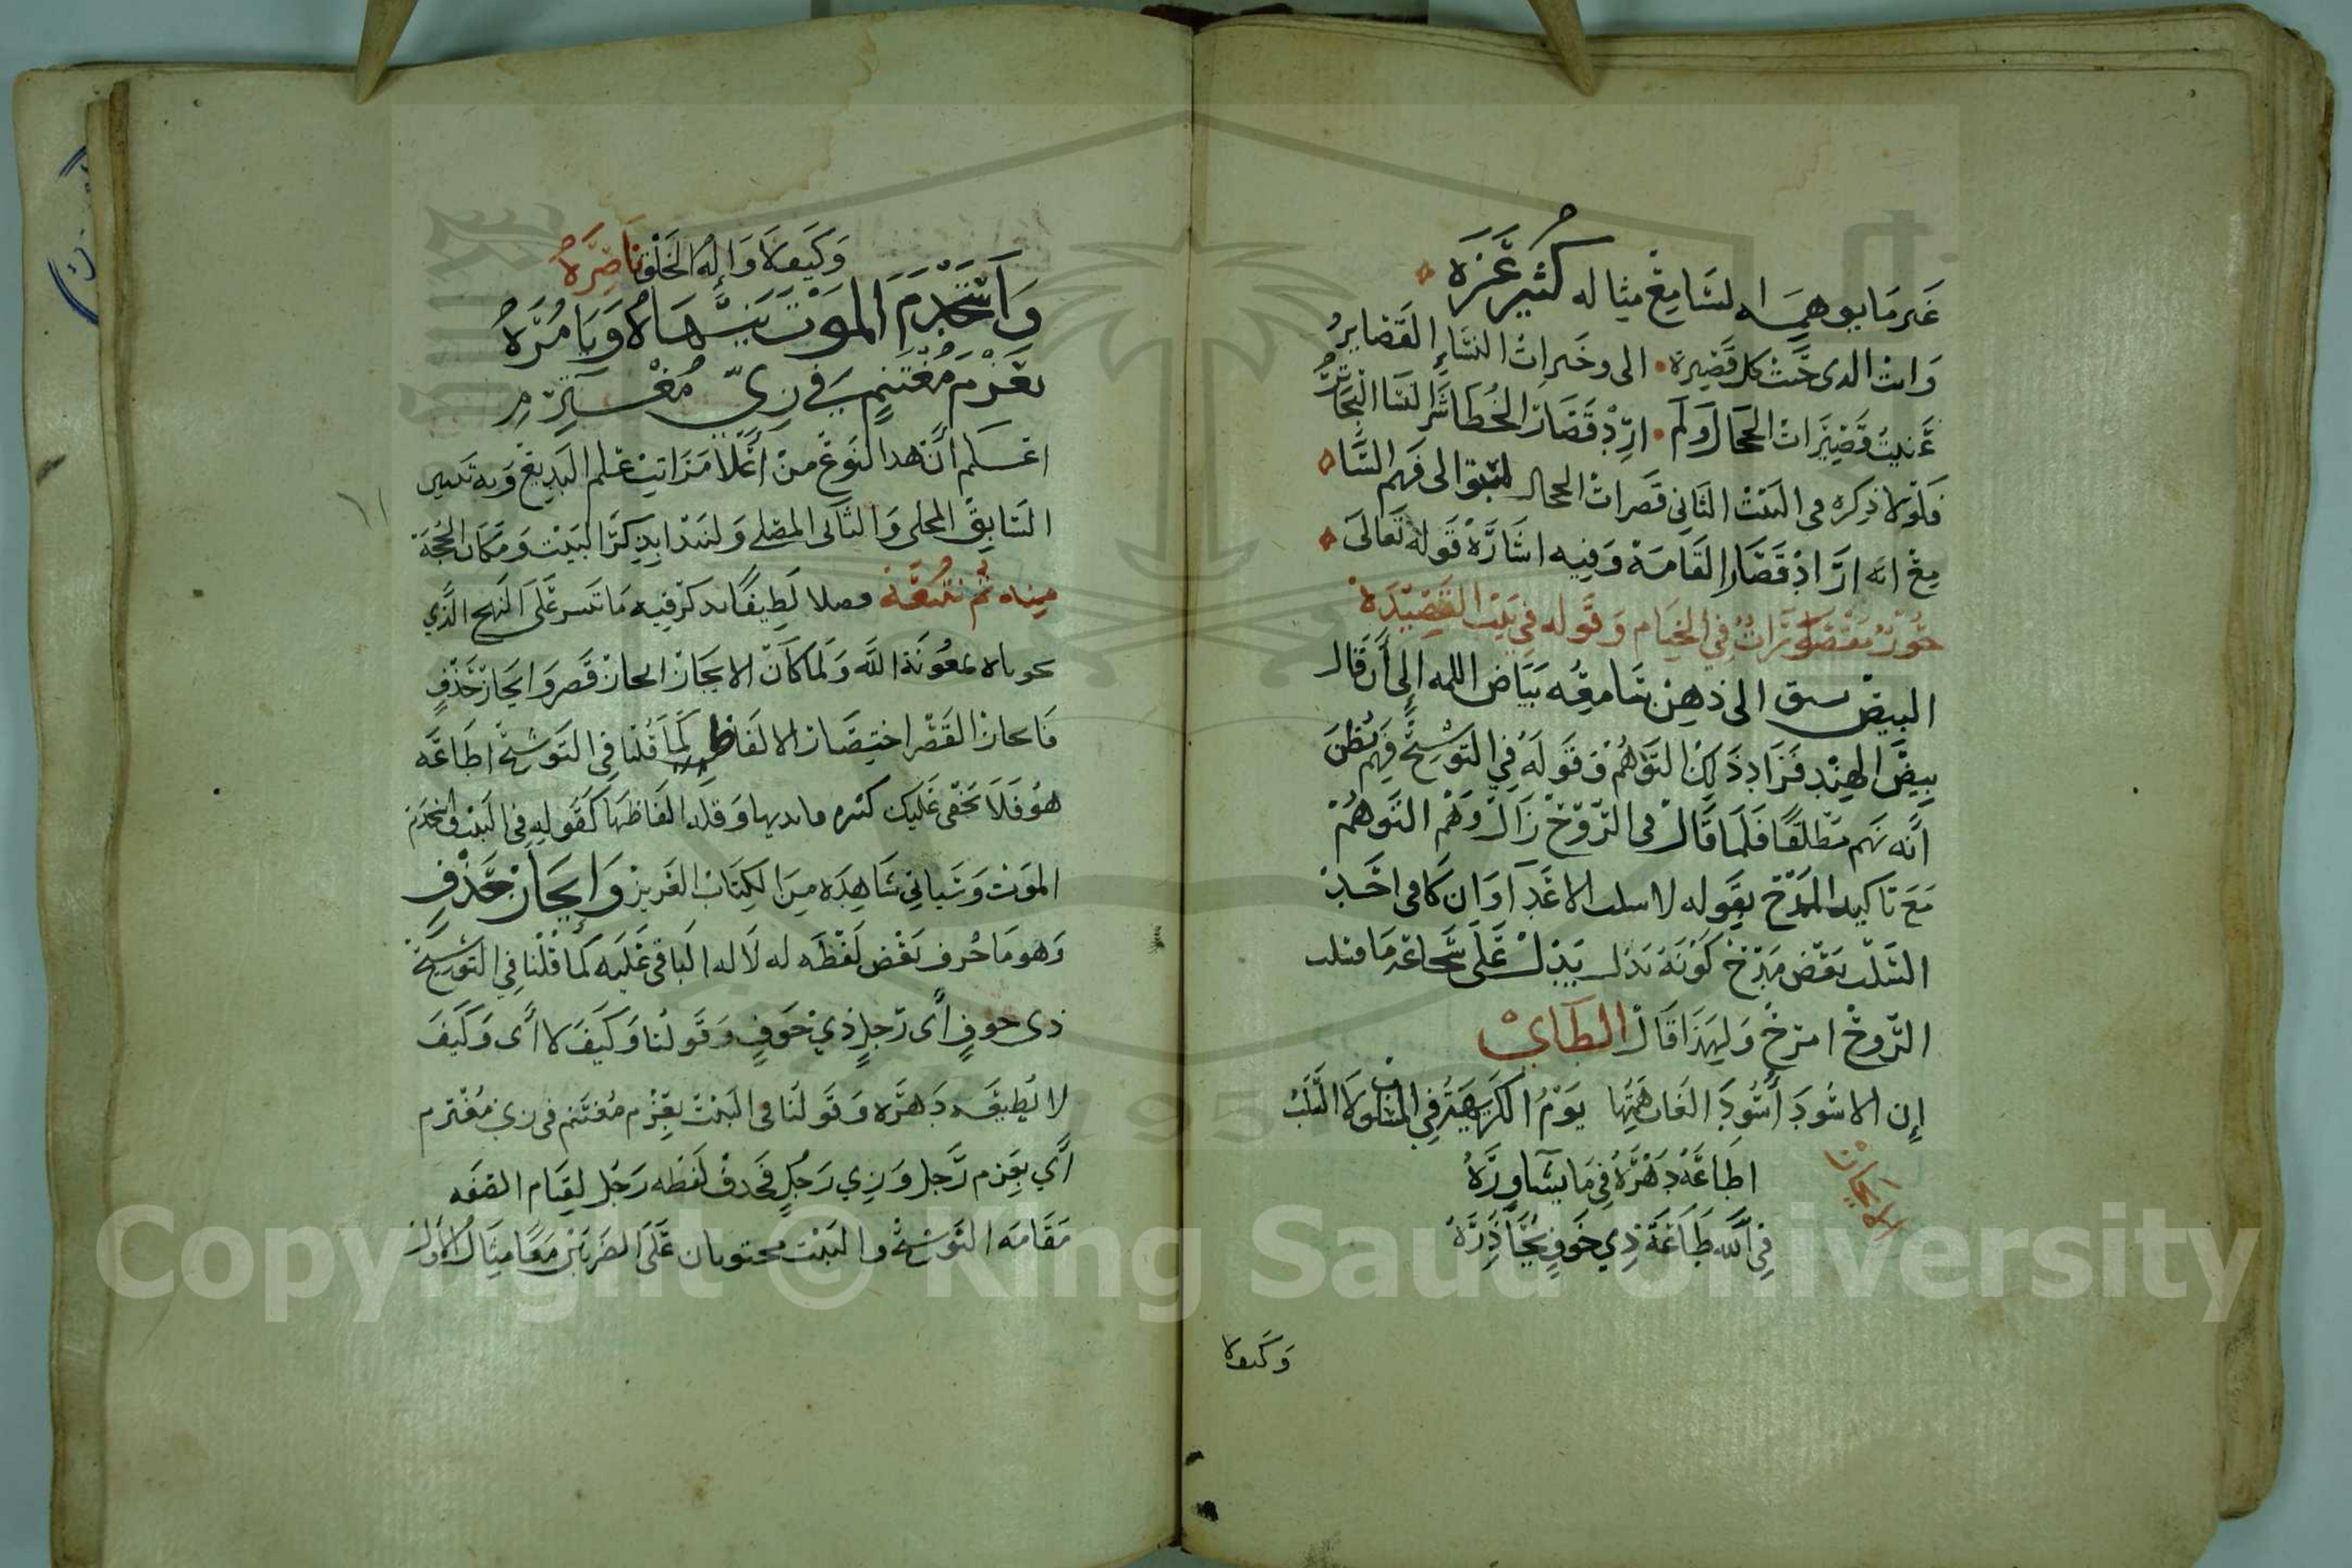 غير ما يوهمه السامع مثاله كثير عزه
وانت الذى حببت كل قصيرة • الى وخيرات النساء القصاير
عنيت قصيرات الحجال ولم • ارد قصار الخطا شر النسا البحاتر
فلولا ذكره فى البيت الثانى قصرات الحجال لسبق الى فهم السا
مع انه اراد قصار القامة وفيه اشارة قوله تعالى
حور مقصورات في الخيام وقوله في بيت القصيدة
البيض سبق الى ذهن سامعه بياض اللمه إلى أن قال
بيض الهند فزاد ذلك التوهم وقوله في التوشيح فهم يظن
أنه نهم مطلقا فلما قال فى الروح زال وهم التوهم
مع تاكيد المدح بقوله لا اسلب الاغدا وان كا فى اخذ
السلب بعض مدح كونه يدل على شجاعة ما
الروح امدح ولهذا قال الطايي
إن الاسود أسود الغاب همتها يوم الكريهة في المسلوب لا السلب
الايجاز
اطاعه دهره في ما يشاوره
في الله طاعة ذي خوف يحاذره
وكيف لا
وكيف لا وإله الخلق ناصره
واستخدم الموت ينهاه ويامره
بعزم مغتنم في زي مغترم
اعلم أن هذا النوع من أعلا مراتب علم البديع وبه تميز
السابق المجلى والثانى المصلى ولنبدا بذكر البيت ومكان الحجة
منه ثم نتبعه فصلا لطيفا نذكر فيه ما تيسر على النهج الذي
نحوناه بمعونة الله ولما كان الايجاز ايجاز قصر وايجاز حذف
فايجاز القصر اختصار الالفاظ كما قلنا في التوشيح اطاعه
هو فلا يخفى عليك كثره معانيها وقلة الفاظها كقوله في البيت واستخدم
الموت وسياتي شاهده من الكتاب العزيز وإيجاز حذف
وهو ما حذف بعض لفظه له لدلاله الباقى عليه كما قلنا في التوشيح
ذى خوف أى رجل ذي خوف وقولنا وكيف لا أى وكيف
لا يطيعه دهره وقولنا فى البيت بعزم مغتنم فى زي مغترم
أي بعزم رجل وزي رجل فحذف لفظه رجل لقيام الصفه
مقامه التوشيح والبيت محتويان على الضربين معا مثال الاول
Copyright © King Saud University
1957